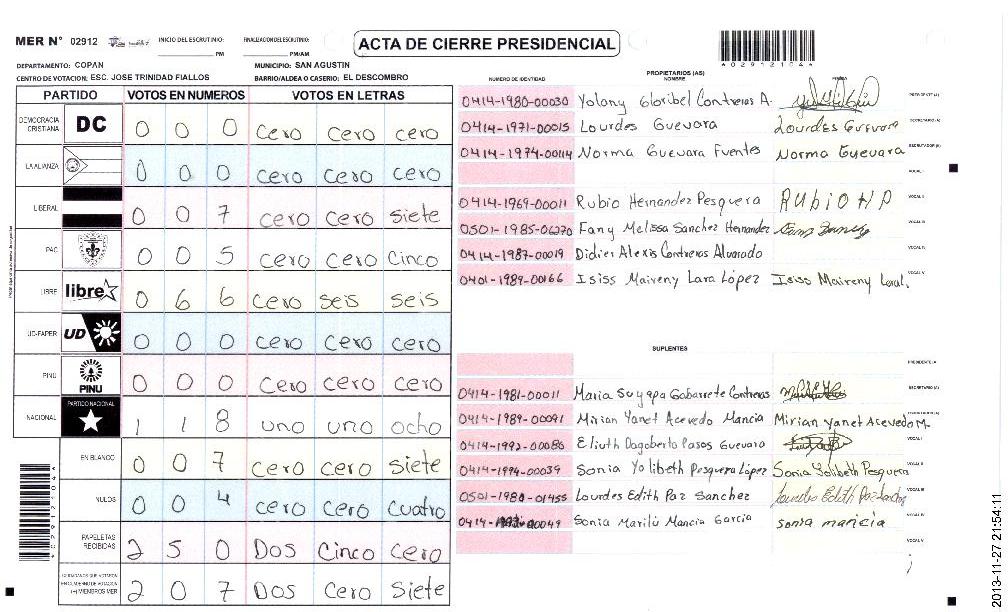 MER N° 02912 INICIO DEL ESCRUTINIO: PM FINALIZACION DEL ESCRUTINIO: PM/AM
ACTA DE CIERRE PRESIDENCIAL
*029121044*
DEPARTAMENTO: COPAN MUNICIPIO: SAN AGUSTIN
CENTRO DE VOTACION: ESC. JOSE TRINIDAD FIALLOS BARRIO/ALDEA O CASERIO: EL DESCOMBRO
PARTIDO VOTOS EN NUMEROS VOTOS EN LETRAS
DEMOCRACIA CRISTIANA DC 0 0 0 cero cero cero
LA ALIANZA 0 0 0 cero cero cero
LIBERAL 0 0 7 cero cero siete
PAC 0 0 5 cero cero cinco
LIBRE libre 0 6 6 cero seis seis
UD-FAPER UD 0 0 0 cero cero cero
PINU PINU 0 0 0 cero cero cero
NACIONAL PARTIDO NACIONAL 1 1 8 uno uno ocho
EN BLANCO 0 0 7 cero cero siete
NULOS 0 0 4 cero cero cuatro
PAPELETAS RECIBIDAS 2 5 0 Dos cinco cero
CIUDADANOS QUE VOTARON EN CUADERNO DE VOTACION (+) MIEMBROS MER 2 0 7 Dos cero siete
PROPIETARIOS (AS)
NUMERO DE IDENTIDAD NOMBRE FIRMA
0414-1980-00030 Yolany Gloribel Contreras A. PRESIDENTE (A)
0414-1971-00015 Lourdes Guevara Lourdes Guevara SECRETARIO (A)
0414-1974-00114 Norma Guevara Fuentes Norma Guevara ESCRUTADOR (A)
VOCAL I
0414-1969-00011 Rubio Hernandez Pesquera Rubio H P VOCAL II
0501-1985-06270 Fany Melissa Sanchez Hernandez VOCAL III
0414-1987-00019 Didier Alexis Contreras Alvarado VOCAL IV
0401-1989-00166 Isiss Maireny Lara López Isiss Maireny Lara L. VOCAL V
SUPLENTES
PRESIDENTE (A)
0414-1981-00011 Maria Suyapa Gabarrete Contreras SECRETARIO (A)
0414-1989-00091 Mirian Yanet Acevedo Mancia Mirian Yanet Acevedo M.
0414-1992-00080 Eliuth Dagoberto Pasos Guevara VOCAL I
0414-1994-00039 Sonia Yolibeth Pesquera López Sonia Yolibeth Pesquera VOCAL II
0501-1980-01455 Lourdes Edith Paz Sanchez Lourdes Edith Paz Sanchez VOCAL III
0414- 00049 Sonia Marilú Mancia Garcia sonia mancia VOCAL IV
VOCAL V
*029121044*
2013-11-27 21:54:11